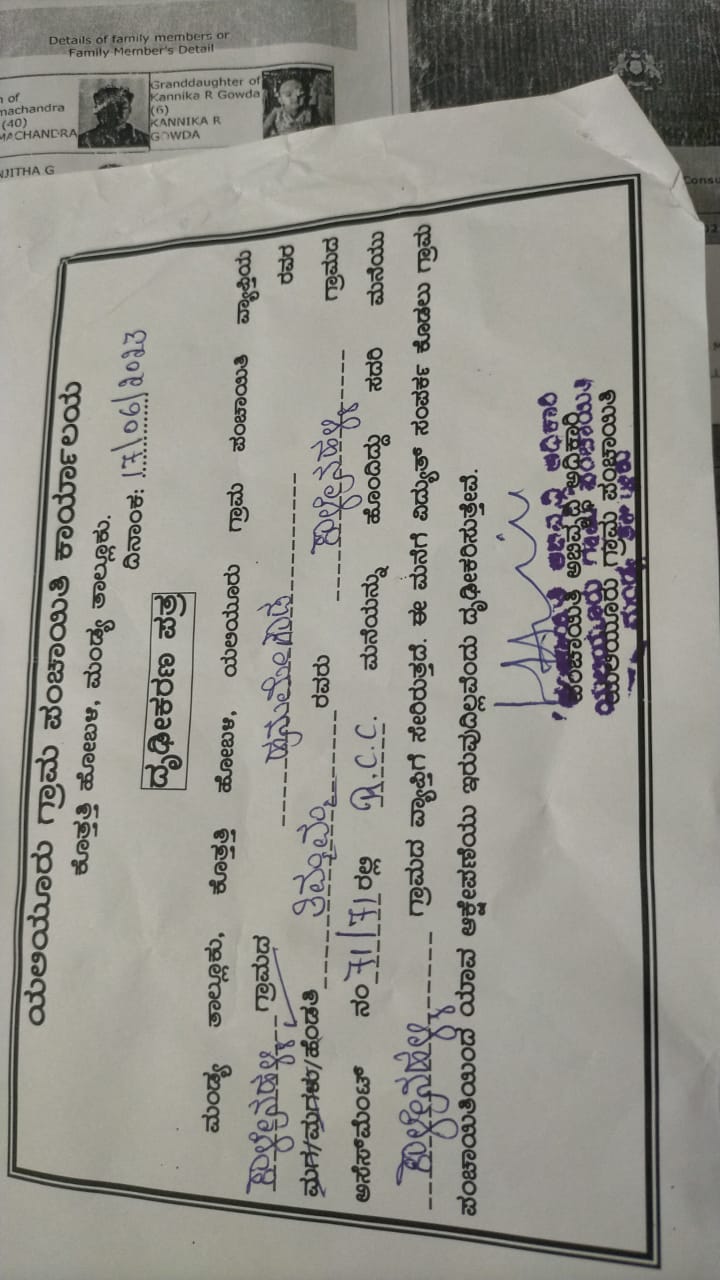 Details of family members or
Family Member's Detail
n of
machandra
(40)
MACHANDRA
Granddaughter of
Kannika R Gowda
(6)
KANNIKA R
GOWDA
NJITHA G
Consu
ಯಲಿಯೂರು ಗ್ರಾಮ ಪಂಚಾಯಿತಿ ಕಾರ್ಯಾಲಯ
ಕೊತ್ತತ್ತಿ ಹೋಬಳಿ, ಮಂಡ್ಯ ತಾಲ್ಲೂಕು.
ದಿನಾಂಕ: 17/06/2023
ದೃಢೀಕರಣ ಪತ್ರ
ಮಂಡ್ಯ ತಾಲ್ಲೂಕು, ಕೊತ್ತತ್ತಿ ಹೋಬಳಿ, ಯಲಿಯೂರು ಗ್ರಾಮ ಪಂಚಾಯಿತಿ ವ್ಯಾಪ್ತಿಯ
ಕಾಳೇನಹಳ್ಳಿ ಗ್ರಾಮದ ಹನುಮೇಗೌಡ ರವರ
ಮಗ/ಮಗಳು/ಹೆಂಡತಿ ತಿಮ್ಮಮ್ಮ ರವರು ಕಾಳೇನಹಳ್ಳಿ ಗ್ರಾಮದ
ಅಸೆಸ್‌ಮೆಂಟ್ ನಂ 71/71 ರಲ್ಲಿ R.C.C. ಮನೆಯನ್ನು ಹೊಂದಿದ್ದು ಸದರಿ ಮನೆಯು
ಕಾಳೇನಹಳ್ಳಿ ಗ್ರಾಮದ ವ್ಯಾಪ್ತಿಗೆ ಸೇರಿರುತ್ತದೆ. ಈ ಮನೆಗೆ ವಿದ್ಯುತ್ ಸಂಪರ್ಕ ಕೊಡಲು ಗ್ರಾಮ
ಪಂಚಾಯಿತಿಯಿಂದ ಯಾವ ಆಕ್ಷೇಪಣೆಯು ಇರುವುದಿಲ್ಲವೆಂದು ದೃಢೀಕರಿಸುತ್ತೇವೆ.
ಪಂಚಾಯಿತಿ ಅಭಿವೃದ್ಧಿ ಅಧಿಕಾರಿ
ಯಲಿಯೂರು ಗ್ರಾಮ ಪಂಚಾಯಿತಿ